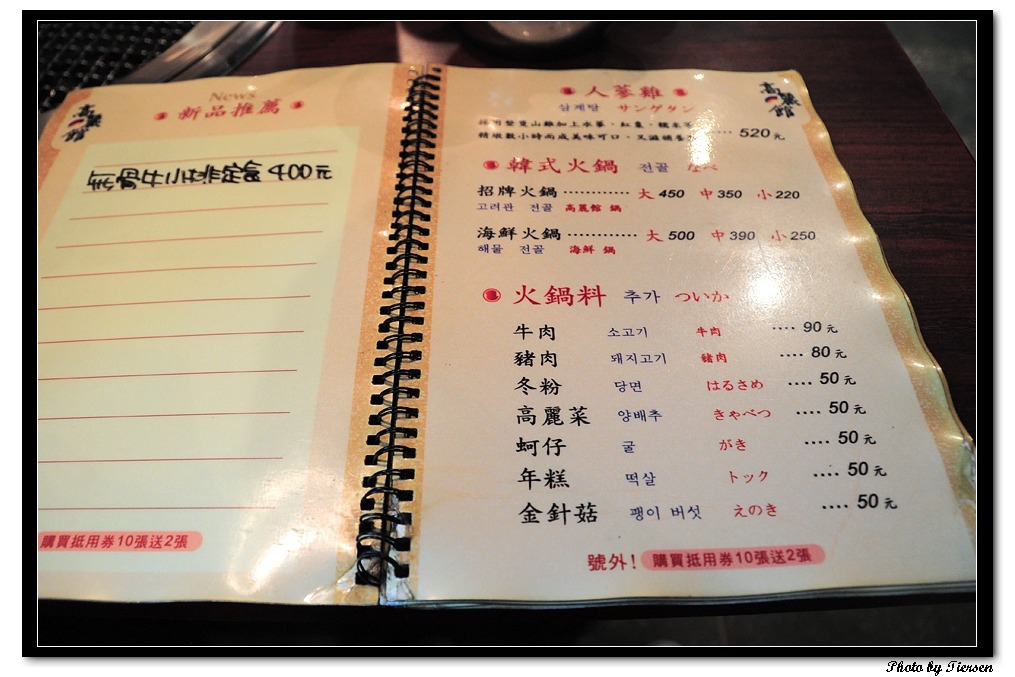 高麗館
News
新品推薦
去骨牛小排定食 400元
購買抵用券10張送2張
高麗館
人蔘雞
삼계탕 サンゲタン
採用整隻山雞加上水蔘、紅棗、糯米等
精燉數小時而成美味可口，又滋補養 520元
韓式火鍋 전골 なべ
招牌火鍋 ………… 大 450 中 350 小 220
고려관 전골 高麗館 鍋
海鮮火鍋 ………… 大 500 中 390 小 250
해물 전골 海鮮 鍋
火鍋料 추가 ついか
牛肉 소고기 牛肉 .... 90元
豬肉 돼지고기 豬肉 .... 80元
冬粉 당면 はるさめ .... 50元
高麗菜 양배추 きゃべつ .... 50元
蚵仔 굴 がき .... 50元
年糕 떡살 トック .... 50元
金針菇 팽이 버섯 えのき .... 50元
號外！ 購買抵用券10張送2張
Photo by Tiersen